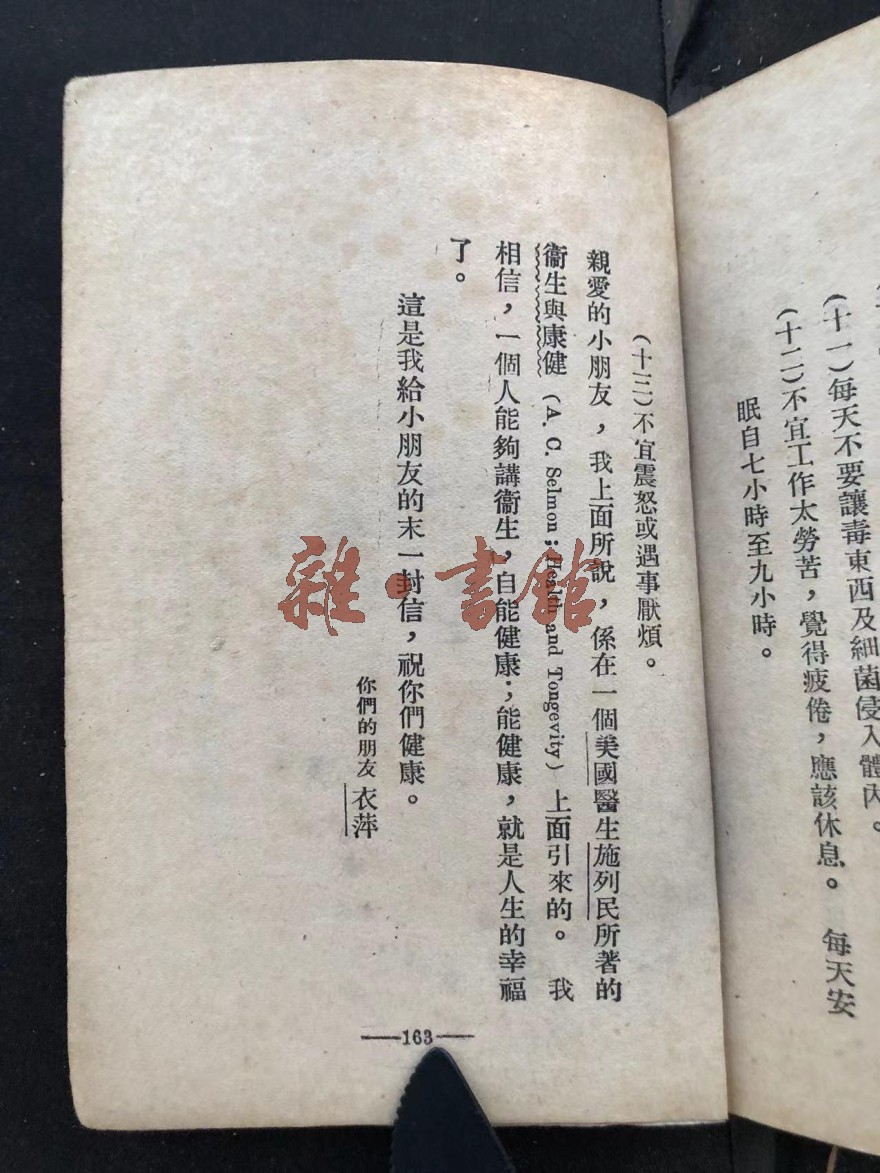 (十一)每天不要讓毒東西及細菌侵入體內。
(十二)不宜工作太勞苦,覺得疲倦,應該休息。 每天安
眠自七小時至九小時。
(十三)不宜震怒或遇事厭煩。
親愛的小朋友,我上面所說,係在一個美國醫生施列民所著的
衞生與康健 (A. C. Selmon; Health and Tongevity) 上面引來的。 我
相信,一個人能夠講衞生,自能健康;能健康,就是人生的幸福
了。
這是我給小朋友的末一封信,祝你們健康。
你們的朋友 衣萍
—163—
雜·書館